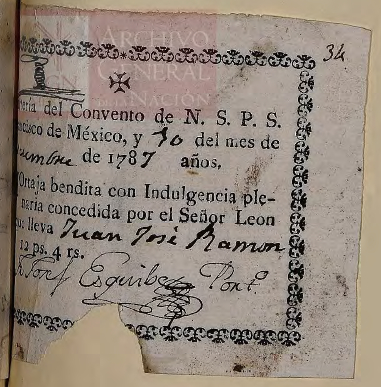 Archivo
General
de la Nación
34
ería del Convento de N. S. P. S.
ncisco de México, y 10 del mes de
iembre de 1787 años.
Ortaja bendita con Indulgencia ple-
naria concedida por el Señor Leon
que lleva Juan José Ramon
12 ps. 4 rs.
Esquibel Port.º